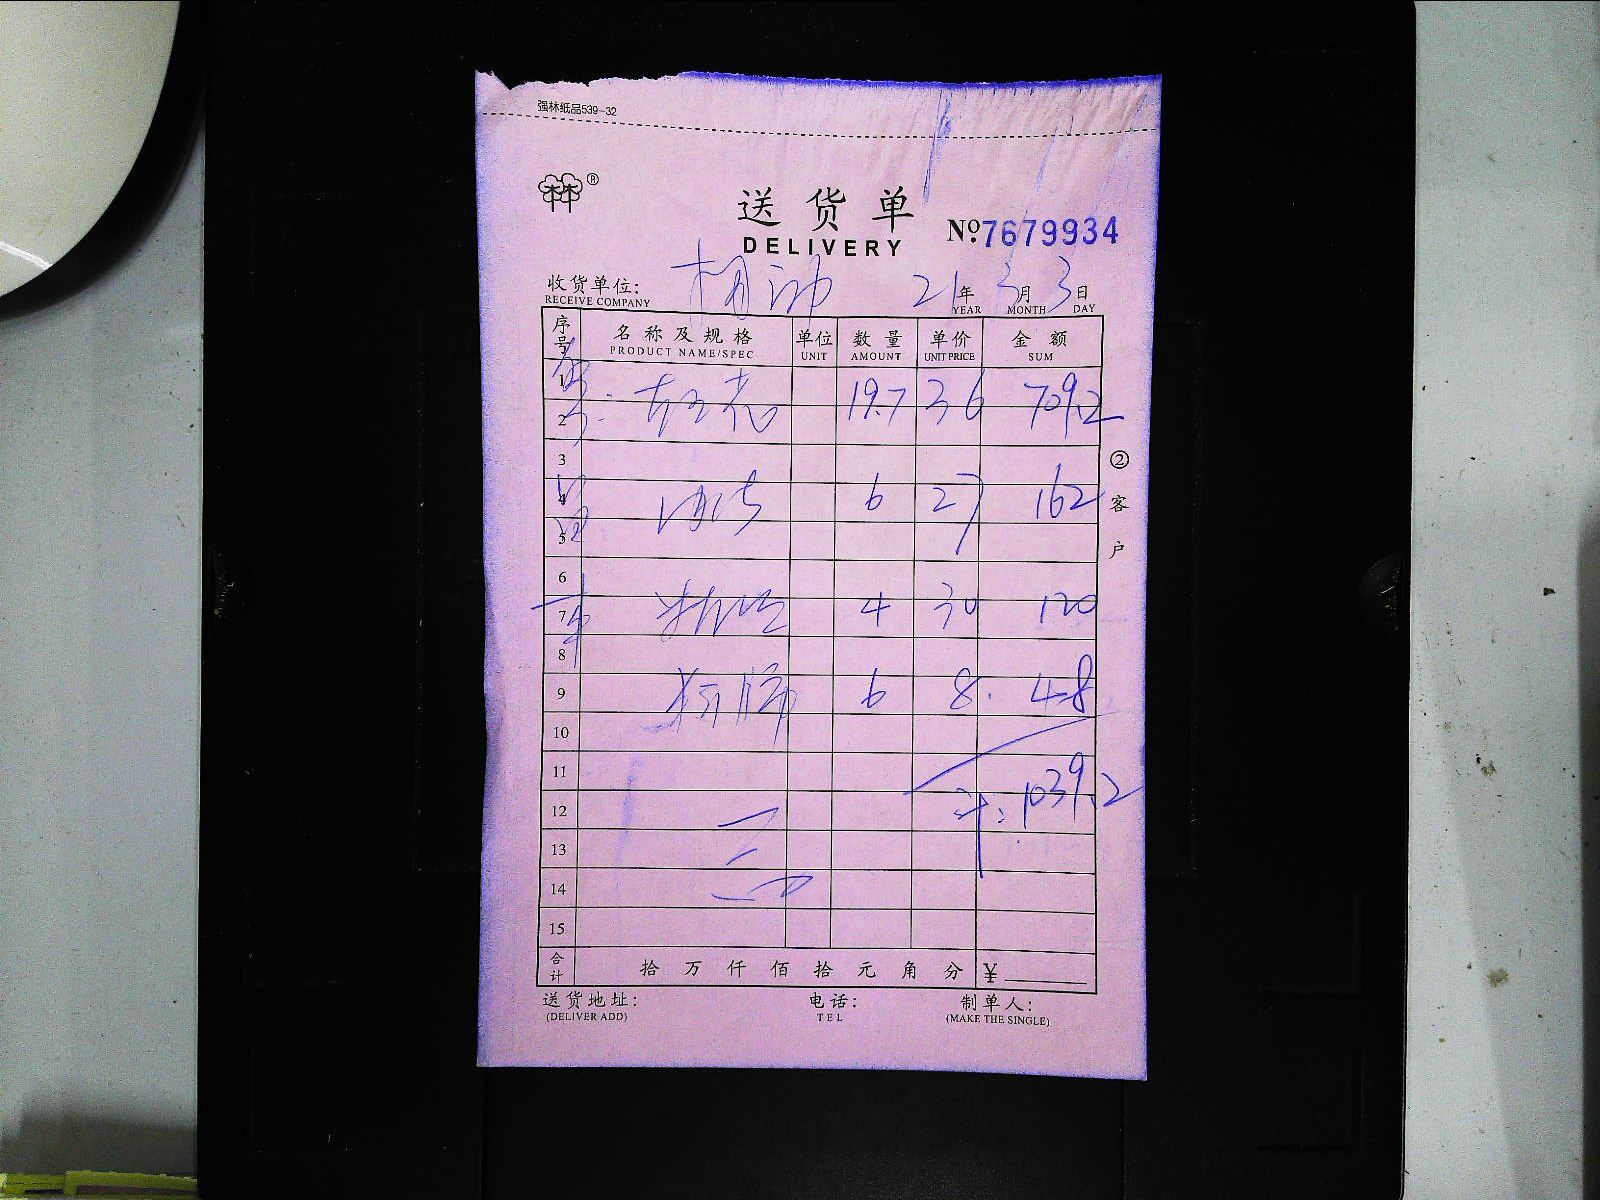 强林纸品539-32
林®
送货单
DELIVERY
№.7679934
收货单位: 21年3月3日
RECEIVE COMPANY YEAR MONTH DAY
序号 名称及规格 单位 数量 单价 金额
PRODUCT NAME/SPEC UNIT AMOUNT UNIT PRICE SUM
1 19.7 36 709.2
2
3
4 6 27 162
5
6
7 4 30 120
8
9 6 8. 48
10
11
12 计: 1039.2
13
14
15
合计 拾万仟佰拾元角分 ¥
送货地址: 电话: 制单人:
(DELIVER ADD) TEL (MAKE THE SINGLE)
②客户